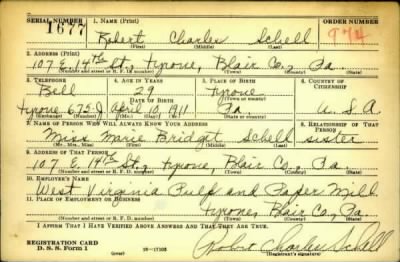 SERIAL NUMBER 1. NAME (Print) ORDER NUMBER
1677 Robert Charles Schell 974
(First) (Middle) (Last)
2. ADDRESS (Print)
107 E. 14th St., Tyrone, Blair Co., Pa.
(Number and street or R. F. D. number) (Town) (County) (State)
3. TELEPHONE 4. AGE IN YEARS 5. PLACE OF BIRTH 6. COUNTRY OF CITIZENSHIP
Bell 29 Tyrone
DATE OF BIRTH (Town or county)
Tyrone 675-J April 10, 1911 Pa. U.S.A.
(Exchange) (Number) (Mo.) (Day) (Yr.) (State or country)
7. NAME OF PERSON WHO WILL ALWAYS KNOW YOUR ADDRESS 8. RELATIONSHIP OF THAT PERSON
Miss Marie Bridget Schell sister
(Mr., Mrs., Miss) (First) (Middle) (Last)
9. ADDRESS OF THAT PERSON
107 E. 14th St., Tyrone, Blair Co., Pa.
(Number and street or R. F. D. number) (Town) (County) (State)
10. EMPLOYER'S NAME
West Virginia Pulp and Paper Mill
11. PLACE OF EMPLOYMENT OR BUSINESS
Tyrone, Blair Co., Pa.
(Number and street or R. F. D. number) (Town) (County) (State)
I AFFIRM THAT I HAVE VERIFIED ABOVE ANSWERS AND THAT THEY ARE TRUE.
REGISTRATION CARD
D. S. S. Form 1 (over) 16-17105 Robert Charles Schell
(Registrant's signature)